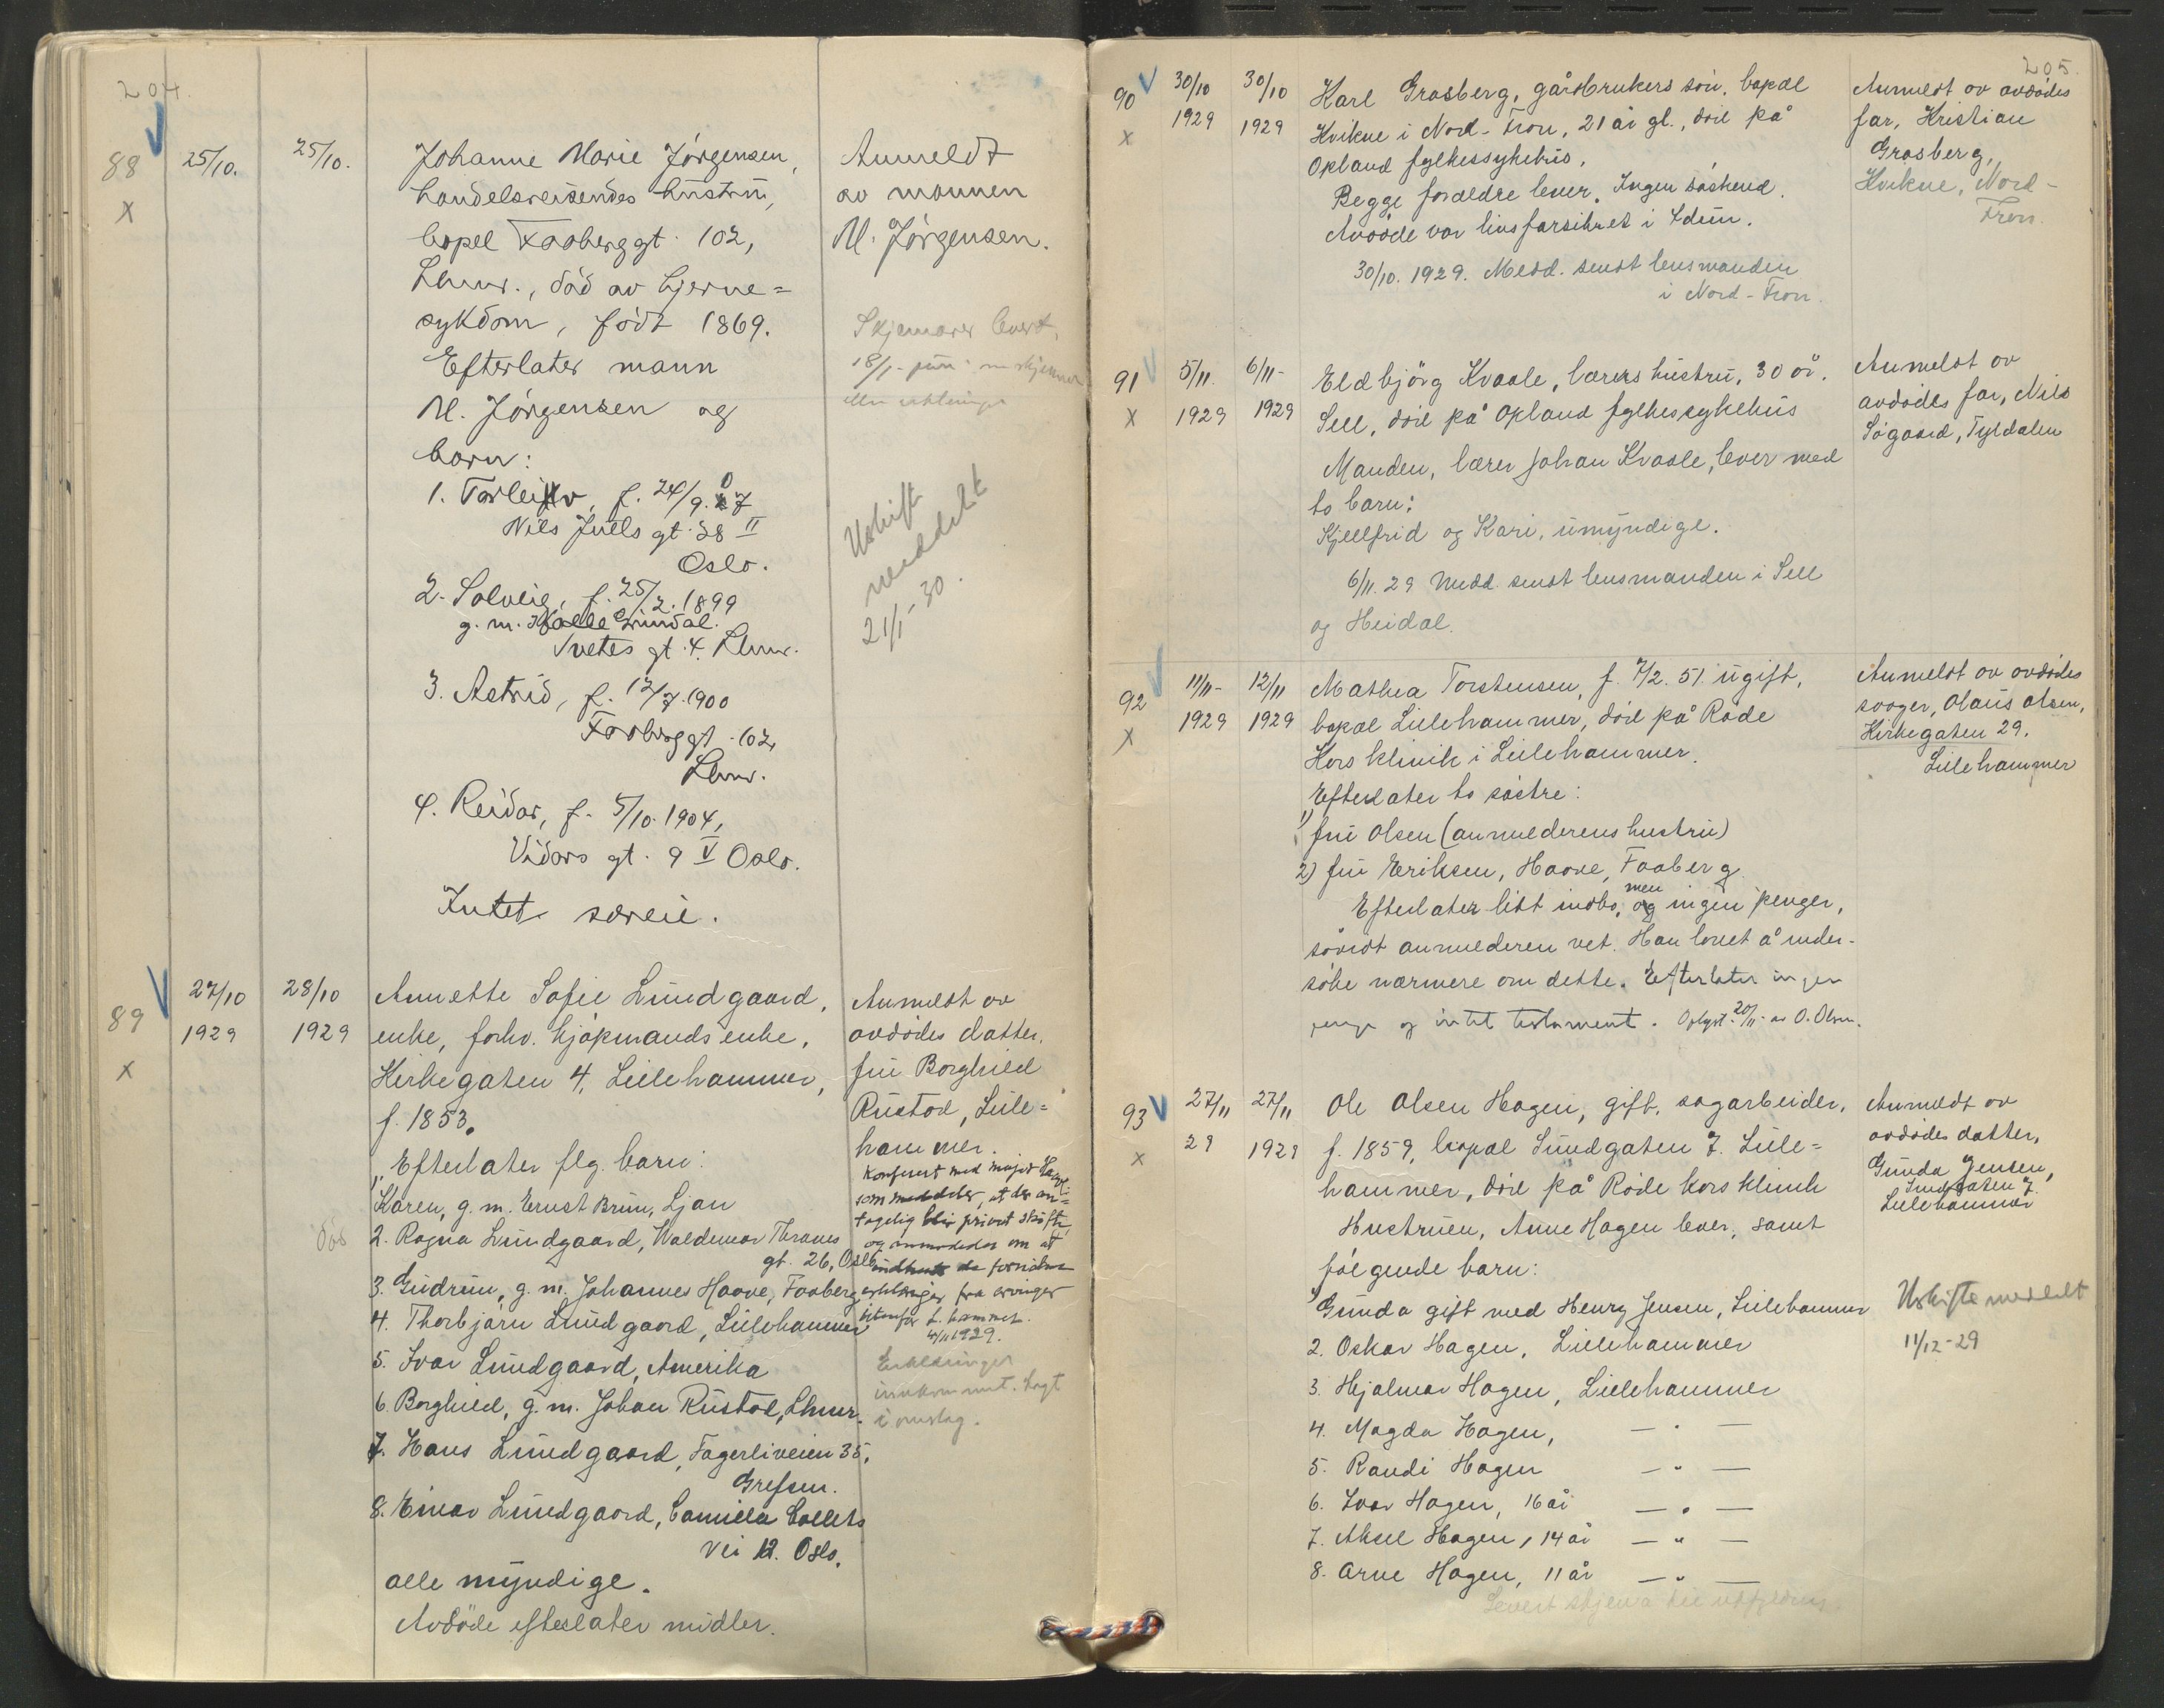 204.
88
x
25/10.
25/10.
Johanne Marie Jörgensen,
handelsreisendes hustru,
bopel Faaberggt. 102,
Lhmr., död av hjerne=
sykdom, född 1869.
Efterlater mann
M. Jörgensen og
barn:
1. Torleiv, f. 24/9. 07
Niels Juels gt. 38 II
Oslo.
2. Solveig, f. 25/2. 1899
g. m. Lundal.
Svetes gt. 4. Lhmr.
3. Astrid, f. 12/7. 1900
Faaberggt. 102,
Lhmr.
4. Reidar, f. 5/10. 1904,
Vidars gt. 9 V Oslo.
Intet særeie.
Anmeldt
av mannen
M. Jörgensen.
Skjemaer levert,
18/1-
Uskift
meddelt
21/1-30.
89
x
27/10
1929
28/10
1929
Annette Sofie Lundgaard,
enke, forhv. kjöpmands enke,
Kirkegaten 4, Lillehammer,
f. 1853.
Efterlater flg. barn:
1, Karen, g. m. Ernst Bruun, Ljan
2. Ragna Lundgaard, Waldemar Thranes
gt. 26, Oslo
3. Gudrun, g. m. Johannes Haave, Faaberg
4. Thorbjörn Lundgaard, Lillehammer
5. Ivar Lundgaard, Amerika
6. Borghild, g. m. Johan Rustad, Lhmr.
7. Hans Lundgaard, Fagerliveien 35,
Grefsen.
8. Einar Lundgaard, Camilla Collets
vei 12. Oslo.
alle myndige.
Avdöde efterlater midler.
Anmeldt av
avdödes datter,
fru Borghild
Rustad, Lille=
hammer.
Konferert med major
som meddeler, at der an=
tagelig blir privat skifte,
og anmodedes om at
erklæringer fra arvinger
utenfor L. hammer.
4/11 1929.
Erklæringer
innkommet. Lagt
i omslag.
205.
90
x
30/10
1929
30/10
1929
Karl Grosberg, gårdbrukers sön, bopæl
Kvikne i Nord-Fron, 21 år gl., död på
Opland fylkessykehus.
Begge forældre lever. Ingen söskend.
Avdöde var livsforsikret i Idun.
30/10. 1929. Medd. sendt lensmanden
i Nord-Fron.
Anmeldt av avdödes
far, Kristian
Grosberg,
Kvikne, Nord-
Fron.
91
x
5/11.
1929
6/11-
1929
Eldbjörg Kvaale, lærers hustru, 30 år.
Sell, död på Opland fylkessykehus
Manden, lærer Johan Kvaale, lever med
to barn:
Kjellfrid og Kari, umyndige.
6/11. 29 medd sendt lensmanden i Sell
og Heidal.
Anmeldt av
avdödes far, Nils
Sögaard, Tyldalen
92
x
11/11-
1929
12/11
1929
Mathea Torstensen, f. 7/2. 51. ugift,
bopæl Lillehammer, död på Röde
Kors klinik i Lillehammer.
Efterlater to söstre:
1) fru Olsen (anmelderens hustru)
2) fru Eriksen, Haave, Faaberg.
Efterlater litt indbo, men ingen penger,
såvidt anmelderen vet. Han lovet å under-
söke nærmere om dette. Efterlater ingen
penger og intet testament. Oplyst 20/11- av O. Olsen.
Anmeldt av avdödes
svoger, Olaus Olsen,
Kirkegaten 29.
Lillehammer
93
x
27/11
29
27/11
1929
Ole Olsen Hagen, gift, sagarbeider,
f. 1859, bopæl Sundgaten 7. Lille=
hammer, död på Röde kors klinik
Hustruen, Anne Hagen lever, samt
fölgende barn:
1) Gunda gift med Henry Jensen, Lillehammer
2. Oskar Hagen, Lillehammer
3. Hjalmar Hagen, Lillehammer
4. Magda Hagen, — " —
5. Randi Hagen — " —
6. Ivar Hagen, 16 år — " —
7. Aksel Hagen, 14 år — " —
8. Arne Hagen, 11 år — " —
Levert skjema til utfylding
Anmeldt av
avdödes datter,
Gunda Jensen,
Sundgaten 7.
Lillehammer
Uskifte meddelt
11/12-29